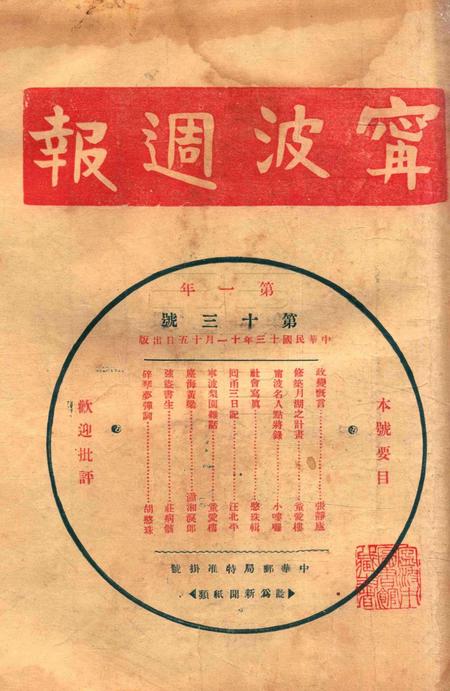 甯波週報
第一年
第十三號
中華民國十三年十一月十五日出版
本號要目
政變慨言………張靜廬
修築月湖之計畫………童愛樓
甯波名人點將錄………小嘍囉
社會寫真………憨珠輯
回甬三日記………汪北平
寧波梨園雜話………童愛樓
塵海黃粱………瀟湘漁郎
強盜書生………莊病骸
碎琴夢彈詞………胡憨珠
歡迎批評
中華郵局特准掛號
認為新聞紙類